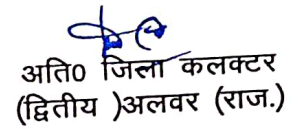 अति0 जिला कलक्टर
(द्वितीय )अलवर (राज.)